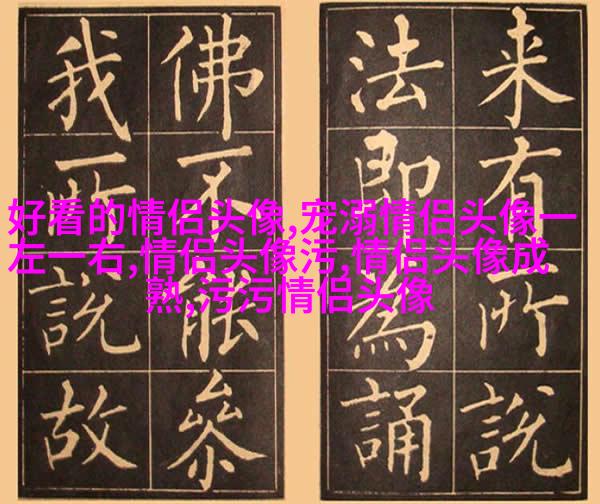 好看的情侣头像,宠溺情侣头像一
左一右,情侣头像污,情侣头像成
熟,污污情侣头像
来有所說
法即為誦
佛不能叅
我所說故